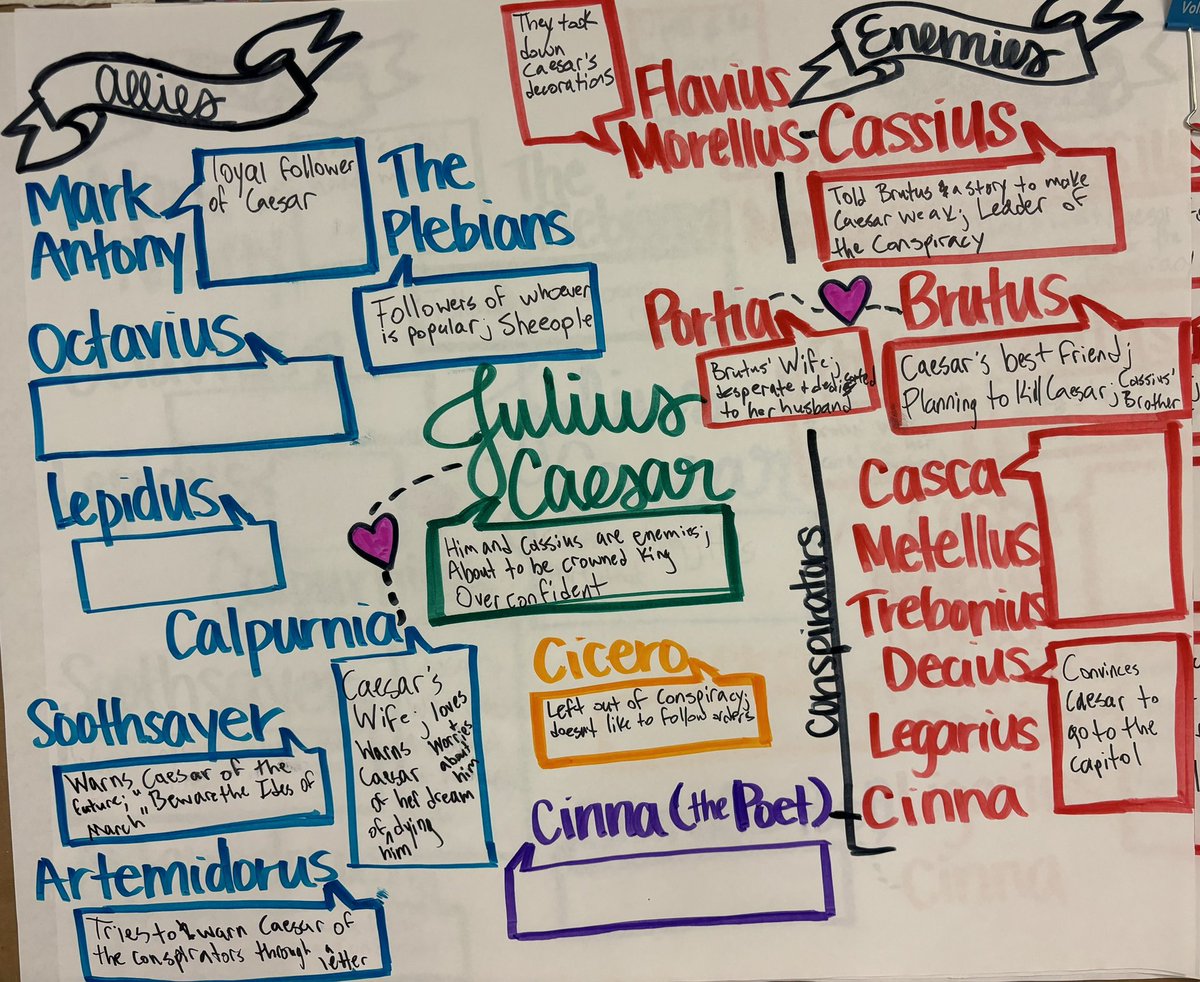 Allies
Mark
Antony
loyal follower
of Caesar
The
Plebians
Followers of whoever
is popular; Sheeople
Octavius
Lepidus
Calpurnia
Caesar's
Wife; loves
+ worries
about
him
Warns
Caesar
of her dream
of him dying
Soothsayer
Warns Caesar of the
future; "Beware the Ides of
March"
Artemidorus
Tries to warn Caesar of
the conspirators through letter
Julius
Caesar
Him and Cassius are enemies;
About to be crowned King
Overconfident
Cicero
Left out of Conspiracy;
doesnt like to follow orders
Cinna (the Poet)
Enemies
They took
down
Caesar's
decorations
Flavius
Morellus
Cassius
Told Brutus a story to make
Caesar weak; Leader of
the Conspiracy
Portia
Brutus' Wife;
desperate + dedicated
to her husband
Brutus
Caesar's best friend;
Planning to Kill Caesar; Cassius'
Brother
Conspirators
Casca
Metellus
Trebonius
Decius
Convinces
Caesar to
go to the
capitol
Legarius
Cinna